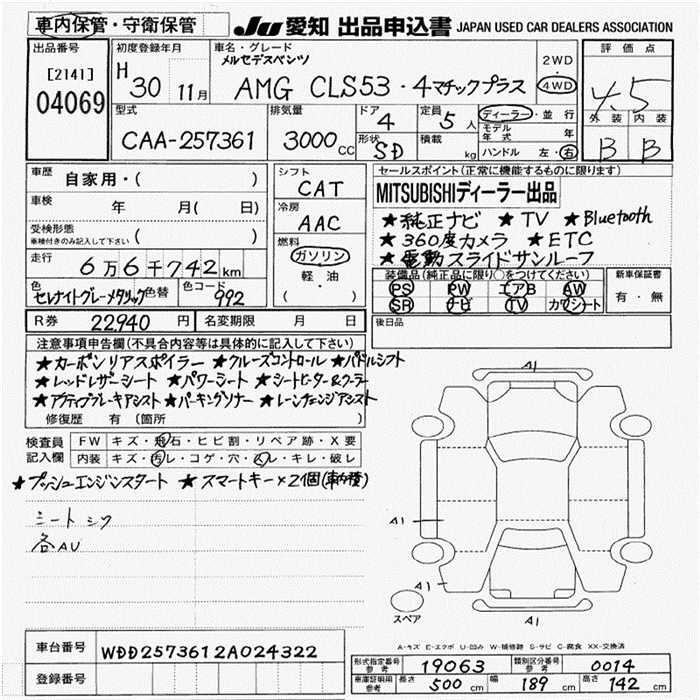 車内保管・守衛保管 JU 愛知 出品申込書 JAPAN USED CAR DEALERS ASSOCIATION
出品番号 初度登録年月 車名・グレード メルセデスベンツ 2WD 評価点
[2141] H 30 11月 AMG CLS53・4マチックプラス 4WD 4.5
04069
型式 排気量 ドア 定員 ディーラー・並行 外装 内装
CAA-257361 3000CC 4 5人 モデル年式 年 B B
形状 SD 積載 kg ハンドル 左・右
車歴 自家用・( ) シフト CAT セールスポイント(正常に機能するものに限ります)
MITSUBISHIディーラー出品
車検 年 月( 日) 冷房 AAC ★純正ナビ ★TV ★Bluetooth
受検形態 車検付きのみ記入して下さい ( ) 燃料 ガソリン ★360度カメラ ★ETC
走行 6万6千742km 軽・油 ★電動スライドサンルーフ
( ) 装備品(純正品に限り○をつけてください) 新車保証書
色 セレナイトグレーメタリック 色替 色コード 992 PS PW エアB AW 有・無
SR ナビ TV カワシート
R券 22,940円 名変期限 月 日 後日品
注意事項申告欄(不具合内容等は具体的に記入して下さい)
★カーボンリアスポイラー ★クルーズコントロール ★パドルシフト
★レッドレザーシート ★パワーシート ★シートヒーター&クーラー
★アクティブブレーキアシスト ★パーキングソナー ★レーンチェンジアシスト
修復歴 有(箇所 )
検査員記入欄 FW キズ・飛石・ヒビ割・リペア跡・X要
内装 キズ・汚レ・コゲ・穴・スレ・キレ・破レ
★プッシュエンジンスタート ★スマートキー×2個(車内積)
シート シワ
各AU
A1
A1
A1
A1
スペア
A-キズ E-エクボ U-凹み W-補修跡 S-サビ C-腐食 XX-交換済
車台番号 WDD2573612A024322
登録番号
形式指定番号 参考 19063 類別区分番号 参考 0014
車庫証明用 参考 長さ 500cm 幅 189cm 高さ 142cm